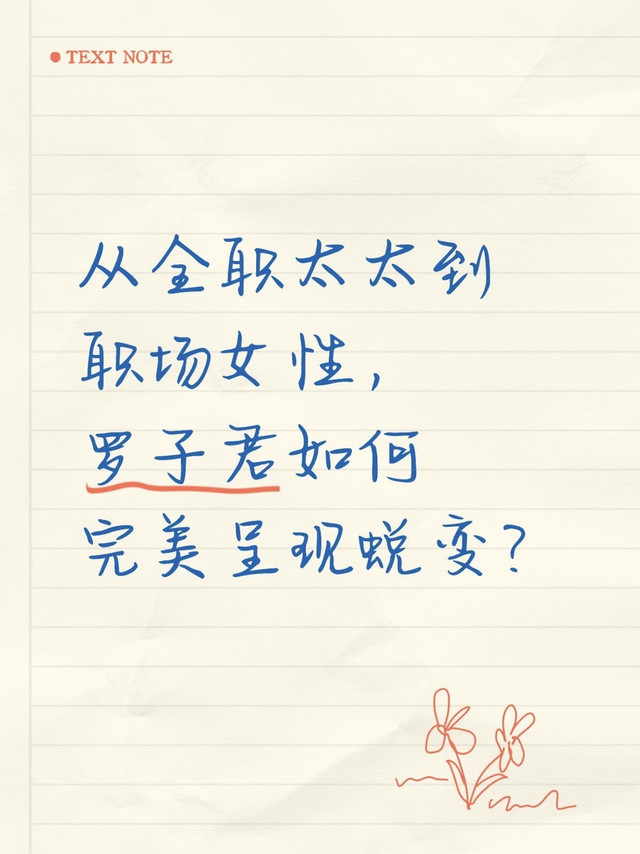 TEXT NOTE
从全职太太到
职场女性，
罗子君如何
完美呈现蜕变？